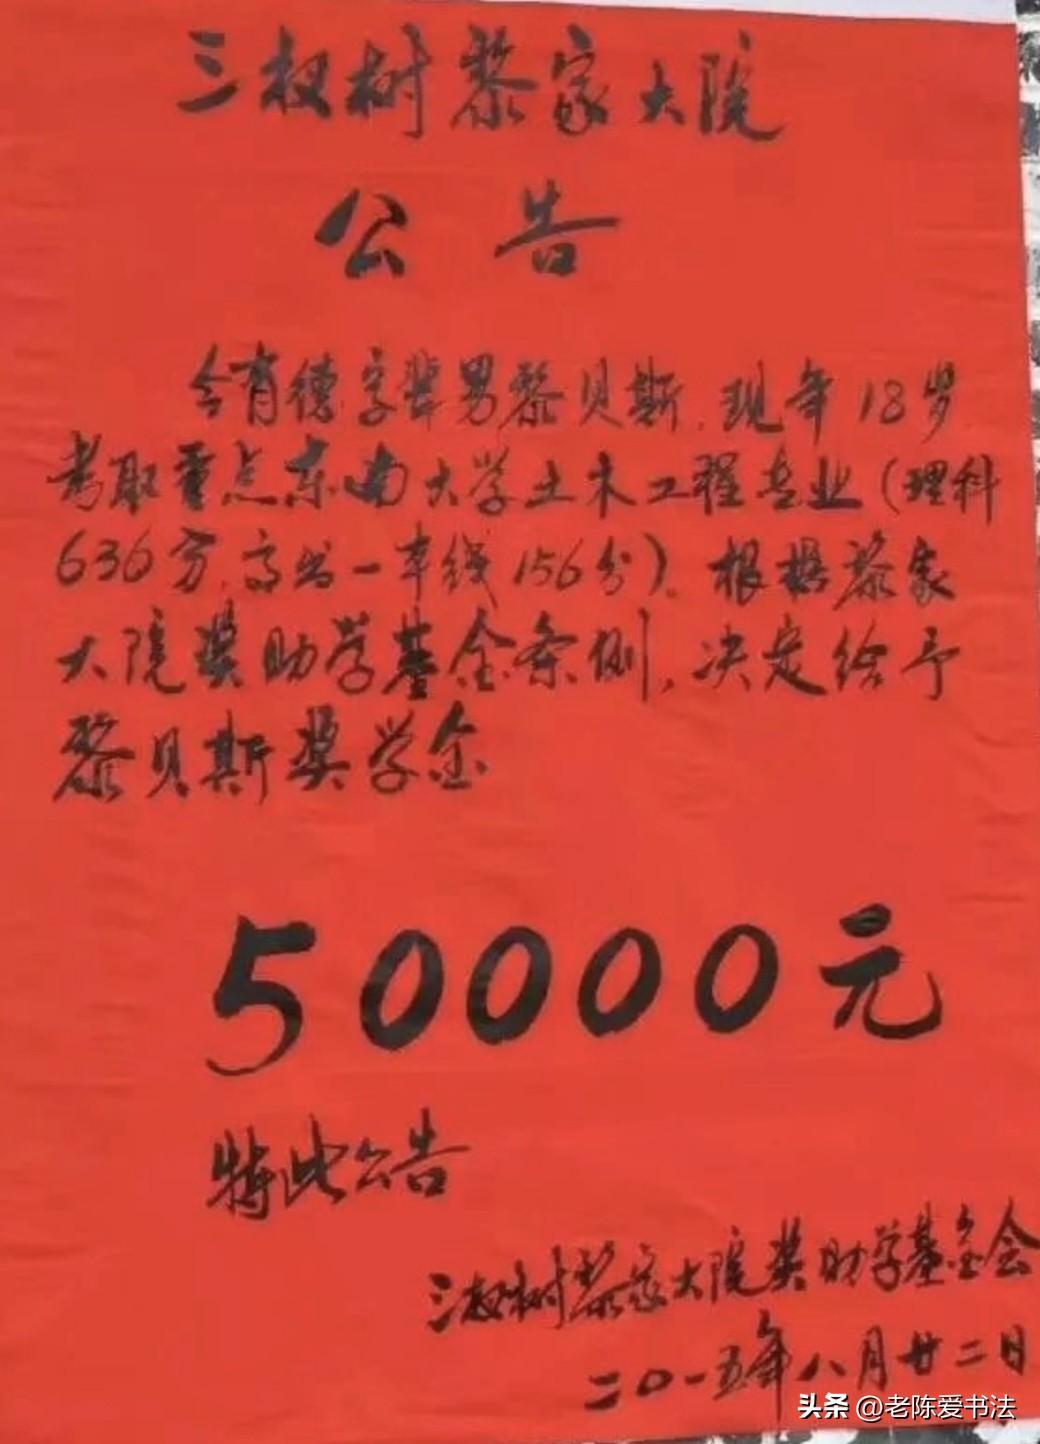 三杈树黎家大院
公告
今有德字辈男黎贝斯,现年18岁
考取重点东南大学土木工程专业(理科
636分,高出一本线156分)。根据黎家
大院奖助学基金条例,决定给予
黎贝斯奖学金
50000元
特此公告
三杈树黎家大院奖助学基金会
二〇一五年八月廿二日
头条 @老陈爱书法